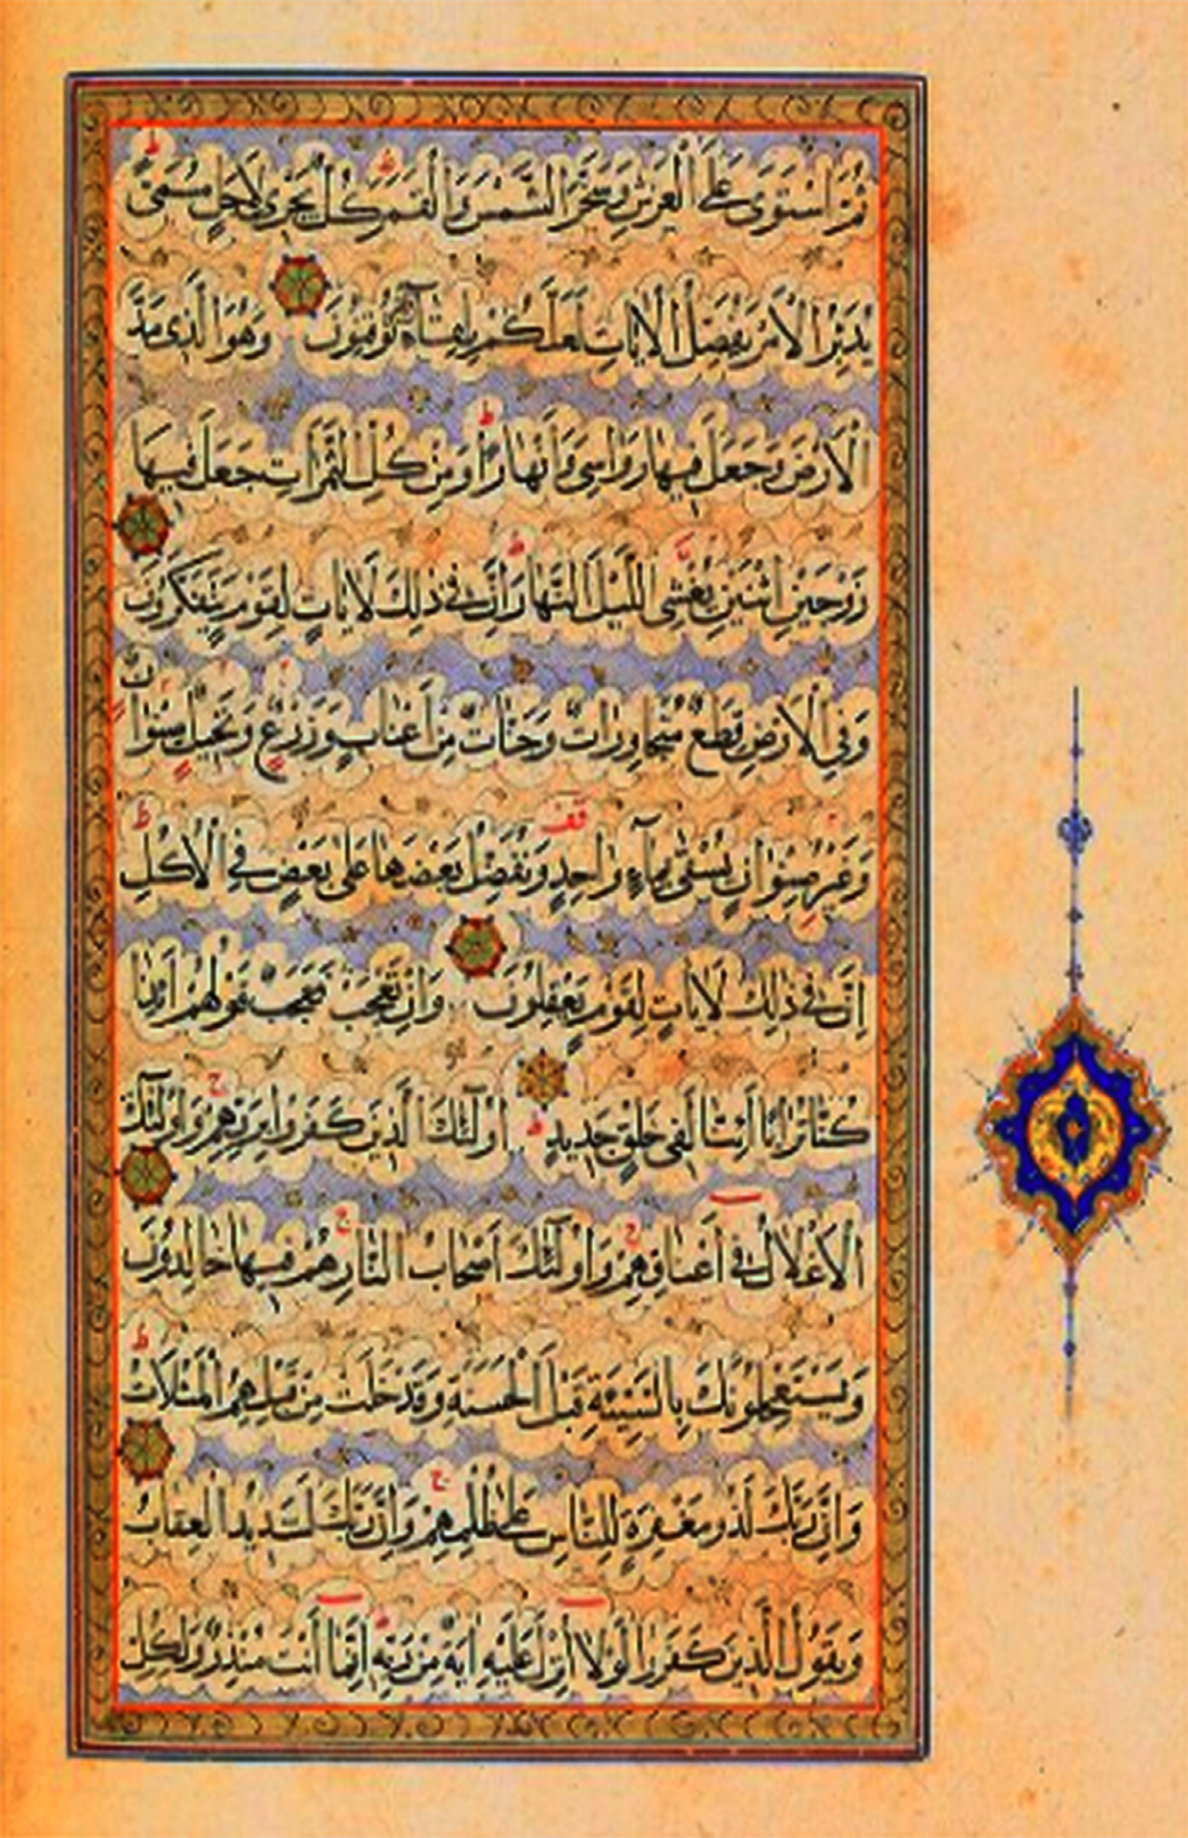 ثُمَّ اسْتَوَى عَلَى الْعَرْشِ وَسَخَّرَ الشَّمْسَ وَالْقَمَرَ كُلٌّ يَجْرِي لِأَجَلٍ مُسَمًّى
يُدَبِّرُ الْأَمْرَ يُفَصِّلُ الْآيَاتِ لَعَلَّكُمْ بِلِقَاءِ رَبِّكُمْ تُوقِنُونَ وَهُوَ الَّذِي مَدَّ
الْأَرْضَ وَجَعَلَ فِيهَا رَوَاسِيَ وَأَنْهَارًا وَمِنْ كُلِّ الثَّمَرَاتِ جَعَلَ فِيهَا
زَوْجَيْنِ اثْنَيْنِ يُغْشِي اللَّيْلَ النَّهَارَ إِنَّ فِي ذَلِكَ لَآيَاتٍ لِقَوْمٍ يَتَفَكَّرُونَ
وَفِي الْأَرْضِ قِطَعٌ مُتَجَاوِرَاتٌ وَجَنَّاتٌ مِنْ أَعْنَابٍ وَزَرْعٌ وَنَخِيلٌ صِنْوَانٌ
وَغَيْرُ صِنْوَانٍ يُسْقَى بِمَاءٍ وَاحِدٍ وَنُفَضِّلُ بَعْضَهَا عَلَى بَعْضٍ فِي الْأُكُلِ
إِنَّ فِي ذَلِكَ لَآيَاتٍ لِقَوْمٍ يَعْقِلُونَ وَإِنْ تَعْجَبْ فَعَجَبٌ قَوْلُهُمْ أَإِذَا
كُنَّا تُرَابًا أَإِنَّا لَفِي خَلْقٍ جَدِيدٍ أُولَئِكَ الَّذِينَ كَفَرُوا بِرَبِّهِمْ وَأُولَئِكَ
الْأَغْلَالُ فِي أَعْنَاقِهِمْ وَأُولَئِكَ أَصْحَابُ النَّارِ هُمْ فِيهَا خَالِدُونَ
وَيَسْتَعْجِلُونَكَ بِالسَّيِّئَةِ قَبْلَ الْحَسَنَةِ وَقَدْ خَلَتْ مِنْ قَبْلِهِمُ الْمَثُلَاتُ
وَإِنَّ رَبَّكَ لَذُو مَغْفِرَةٍ لِلنَّاسِ عَلَى ظُلْمِهِمْ وَإِنَّ رَبَّكَ لَشَدِيدُ الْعِقَابِ
وَيَقُولُ الَّذِينَ كَفَرُوا لَوْلَا أُنْزِلَ عَلَيْهِ آيَةٌ مِنْ رَبِّهِ إِنَّمَا أَنْتَ مُنْذِرٌ وَلِكُلِّ